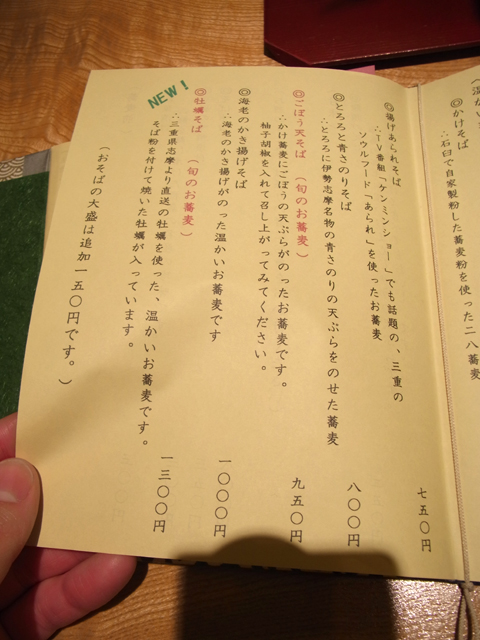 （温か
◎かけそば
∴石臼で自家製粉した蕎麦粉を使った二八蕎麦
◎揚げあられそば
∴TV番組「ケンミンショー」でも話題の、三重の
ソウルフード「あられ」を使ったお蕎麦
七五〇円
◎とろろと青さのりそば
∴とろろに伊勢志摩名物の青さのりの天ぷらをのせた蕎麦
八〇〇円
◎ごぼう天そば （旬のお蕎麦）
∴かけ蕎麦にごぼうの天ぷらがのったお蕎麦です。
柚子胡椒を入れて召し上がってみてください。
九五〇円
◎海老のかき揚げそば
∴海老のかき揚げがのった温かいお蕎麦です
一〇〇〇円
NEW！
◎牡蠣そば （旬のお蕎麦）
∴三重県志摩より直送の牡蠣を使った、温かいお蕎麦です。
そば粉を付けて焼いた牡蠣が入っています。
一三〇〇円
（おそばの大盛は追加一五〇円です。）